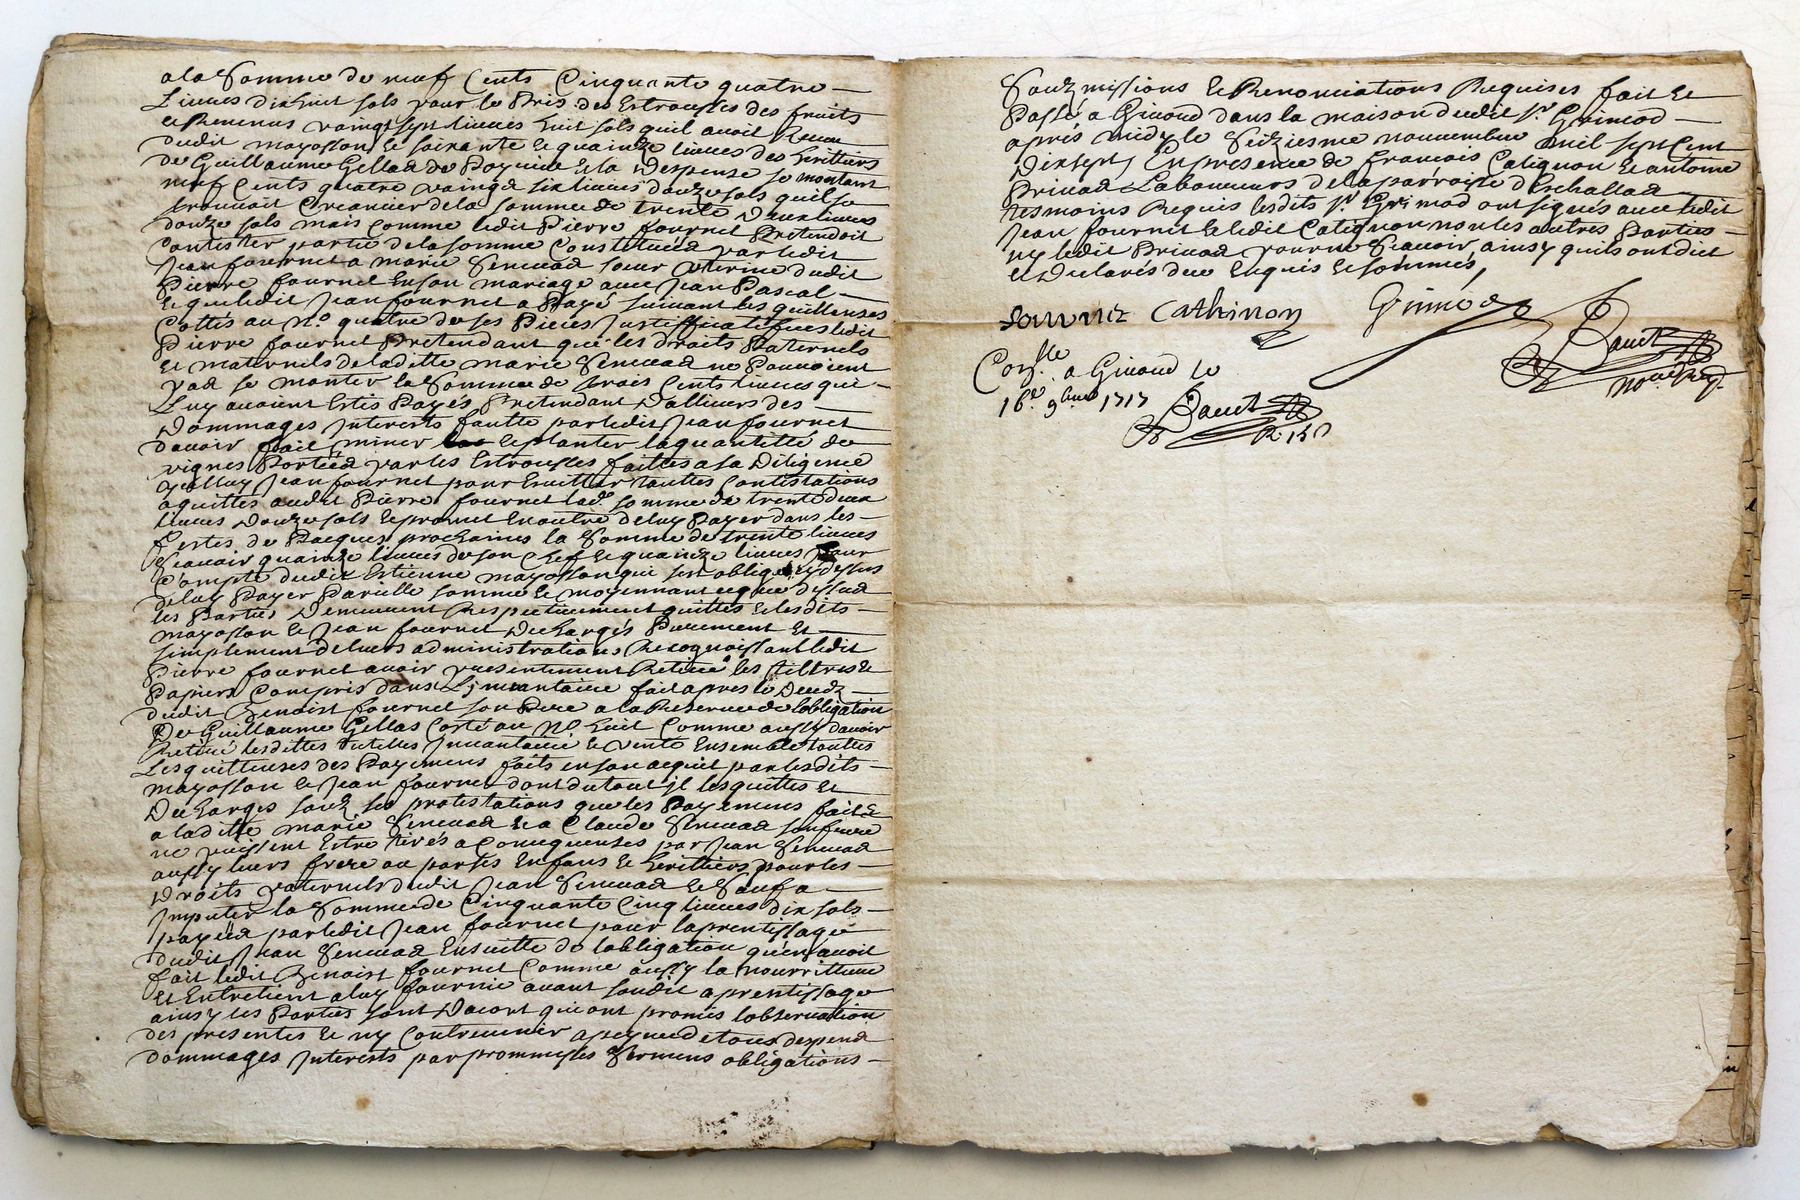 a la Somme de neuf Cents Cinquante quatre
Livres dixhuit sols pour le Pris des Estrousses des fruits
et Revenus vaingt sept livres huit sols quil avoit Receu
dudit mayosson et soixante et quainze livres des heritiers
de Guillaume Gellas de et la Despense se montant
neuf Cents quatre vaingt six livres douze sols quil se
trouvoit Creancier de la somme de trente Deux livres
douze sols mais comme ledit Pierre fournet Pretendoit
Contester partie de la somme Constituée par ledit
Jean fournet a marie soeur uterine dudit
Pierre fournet En son mariage avec Jean Pascal
et que ledit Jean fournet a Payé suivant les quittenses
Cottés au N.o quatre de ses Pieces Justifficatifves ledit
Pierre fournet Pretendant que les droits Paternels
et maternels de laditte marie ne Pouvoient
pas se monter la Somme de trois Cents livres qui
Luy avoient Estés Payés Pretendant D'allieurs des
Dommages Interests fautte par ledit Jean fournet
davoir fait miner et planter la quantitté de
vignes Portées par les Estrousses faittes a sa Diligence
Jean fournet pour Esvitter touttes Contestations
a quitté audit Pierre fournet lad. somme de trente deux
livres Douze sols et promet En outre de luy Payer dans les
festes de Pacques prochaines la Somme de trente livres
Scavoir quainze livres de son Chef et quainze livres pour
Compte dudit Estienne mayosson qui sest obligé cy dessus
de luy Payer Pareille somme et moyennant ce que dessus
les Parties Demeurent Respectivement quittes et lesdits
mayosson et Jean fournet Dechargés Purement et
simplement de leurs administrations Recognoissant ledit
Pierre fournet avoir presentement Retiré les tiltres et
Papiers Compris dans L'jnvantaire fait apres le Decedz
dudit Benoist fournet son Pere a la Reserve de lobligation
De Guillaume Gellas Cotté au N.o huit Comme aussy davoir
Retiré lesdittes tutelles Jnvantaire et vente Ensemble touttes
Les quittenses des Payemens faits en son acquit par lesdits
mayosson et Jean fournet dont du tout jl les quittes et
Decharges souz les protestations que les Payemens faits
a laditte marie et a Claude son frere
ne puissent Estre tirés a Consequenses par Jean
aussy leurs frere ou par ses Enfans et heritiers pour les
Droits paternels dudit Jean et Sauf a
Jmputer la Somme de Cinquante Cinq livres dix sols
payée par ledit Jean fournet pour laprentissage
dudit Jean Ensuitte de lobligation qu'en avoit
fait ledit Benoist fournet Comme aussy la nourritture
et Entretient a luy fournie avant sondit aprentissage
ainsy les Parties sont Dacort qui ont promis lobservation
des presentes et ny Contrevenir a peyne de tous despens
dommages Interests par prommesses Sermens obligations
Souzmissions et Renonciations Requises fait et
Passé a Givord dans la maison dudit Sr. Grimod
aprés midy le Seiziesme novembre mil sept Cent
Dixsept En presence de francois Catignon et antoine
Privas Laboureurs de la parroisse d'Eschallas
tesmoins Requis lesdits Sr. Grimod ont signés avec ledit
Jean fournet et ledit Catignon non les autres Parties
ny ledit Privas pour ne Scavoir ainsy quils ont dict
et Declarés de ce Enquis et sommés
fournet Cathinon Grimod
no.re Roy.
Con.lle a Givord le
16.e 9.bre 1717